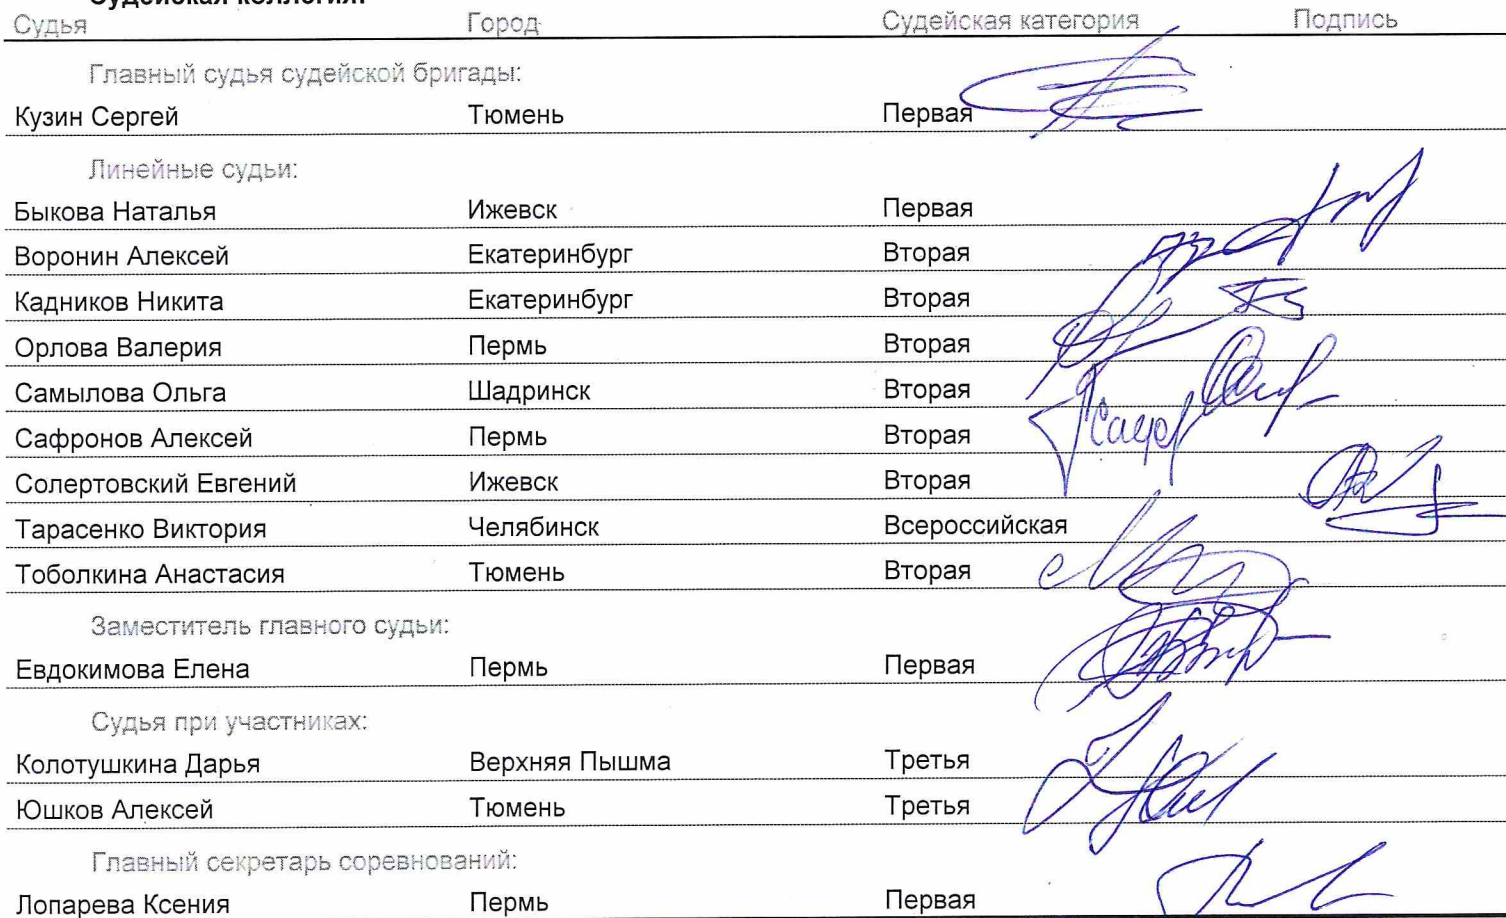 Судейская коллегия:
Судья Город Судейская категория Подпись
Главный судья судейской бригады:
Кузин Сергей Тюмень Первая
Линейные судьи:
Быкова Наталья Ижевск Первая
Воронин Алексей Екатеринбург Вторая
Кадников Никита Екатеринбург Вторая
Орлова Валерия Пермь Вторая
Самылова Ольга Шадринск Вторая
Сафронов Алексей Пермь Вторая
Солертовский Евгений Ижевск Вторая
Тарасенко Виктория Челябинск Всероссийская
Тоболкина Анастасия Тюмень Вторая
Заместитель главного судьи:
Евдокимова Елена Пермь Первая
Судья при участниках:
Колотушкина Дарья Верхняя Пышма Третья
Юшков Алексей Тюмень Третья
Главный секретарь соревнований:
Лопарева Ксения Пермь Первая